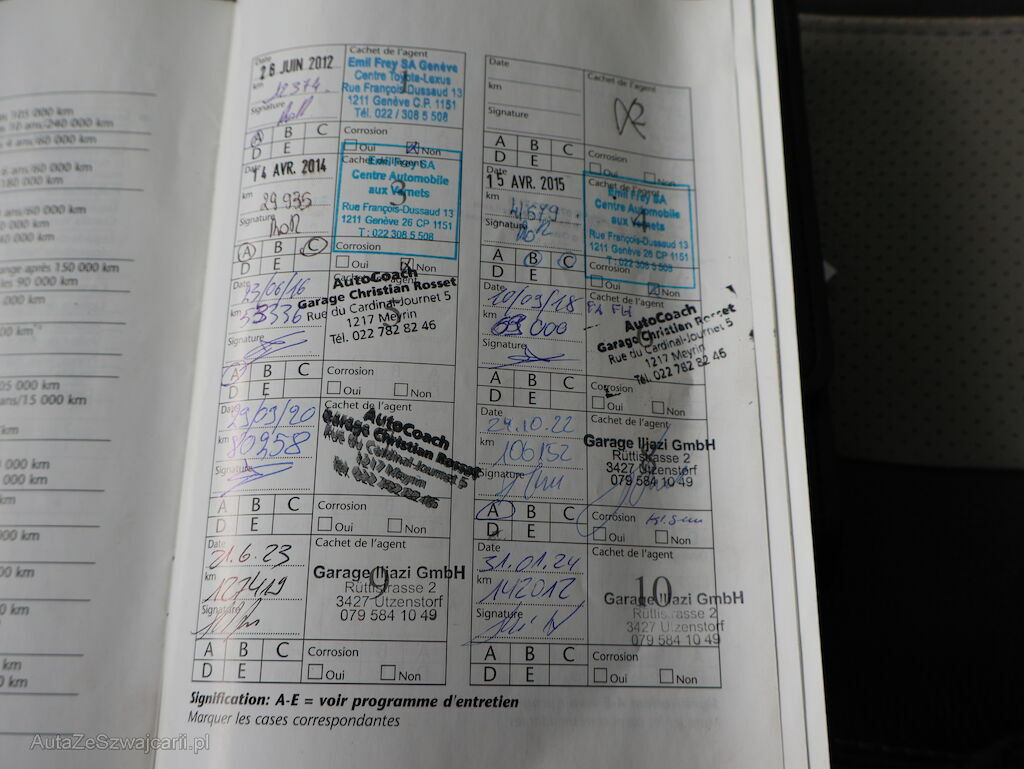 000 km
180 000 km
60 000 km
ange après 150 000 km
les 90 000 km
000 km
05 000 km
ans/15 000 km
0 000 km
000 km
00 km
000 km
Date
26 JUIN 2012
km
Signature
Cachet de l'agent
1
Emil Frey SA Genève
Centre Toyota-Lexus
Rue François-Dussaud 13
1211 Genève C.P. 1151
Tél. 022 / 308 5 508
A B C
D E
Corrosion
Oui Non
Date
km
Signature
Cachet de l'agent
A B C
D E
Corrosion
Oui Non
Date
14 AVR. 2014
km
29935
Signature
Cachet de l'agent
3
Emil Frey SA
Centre Automobile
aux Vernets
Rue François-Dussaud 13
1211 Genève 26 CP 1151
T : 022 308 5 508
A B C
D E
Corrosion
Oui Non
15 AVR. 2015
km
41679
Signature
Cachet de l'agent
4
Emil Frey SA
Centre Automobile
aux Vernets
Rue François-Dussaud 13
1211 Genève 26 CP 1151
T : 022 308 5 508
A B C
D E
Corrosion
Oui Non
23/06/16
km
53336
Signature
Cachet de l'agent
AutoCoach
Garage Christian Rosset
Rue du Cardinal-Journet 5
1217 Meyrin
Tél. 022 782 82 46
A B C
D E
Corrosion
Oui Non
Date
km
Signature
Cachet de l'agent
AutoCoach
Garage Christian Rosset
Rue du Cardinal-Journet 5
1217 Meyrin
Tél. 022 782 82 46
A B C
D E
Corrosion
Oui Non
Date
km
80958
Signature
Cachet de l'agent
AutoCoach
Garage Christian Rosset
Rue du Cardinal-Journet 5
1217 Meyrin
Tél. 022 782 82 46
A B C
D E
Corrosion
Oui Non
Date
24.10.22
km
106152
Signature
Cachet de l'agent
Garage Iljazi GmbH
Rüttistrasse 2
3427 Utzenstorf
079 584 10 49
A B C
D E
Corrosion
Oui Non
Date
21.6.23
km
127419
Signature
Cachet de l'agent
9
Garage Iljazi GmbH
Rüttistrasse 2
3427 Utzenstorf
079 584 10 49
A B C
D E
Corrosion
Oui Non
Date
31.01.24
km
142012
Signature
Cachet de l'agent
10
Garage Iljazi GmbH
Rüttistrasse 2
3427 Utzenstorf
079 584 10 49
A B C
D E
Corrosion
Oui Non
Signification: A-E = voir programme d'entretien
Marquer les cases correspondantes
AutaZeSzwajcarii.pl